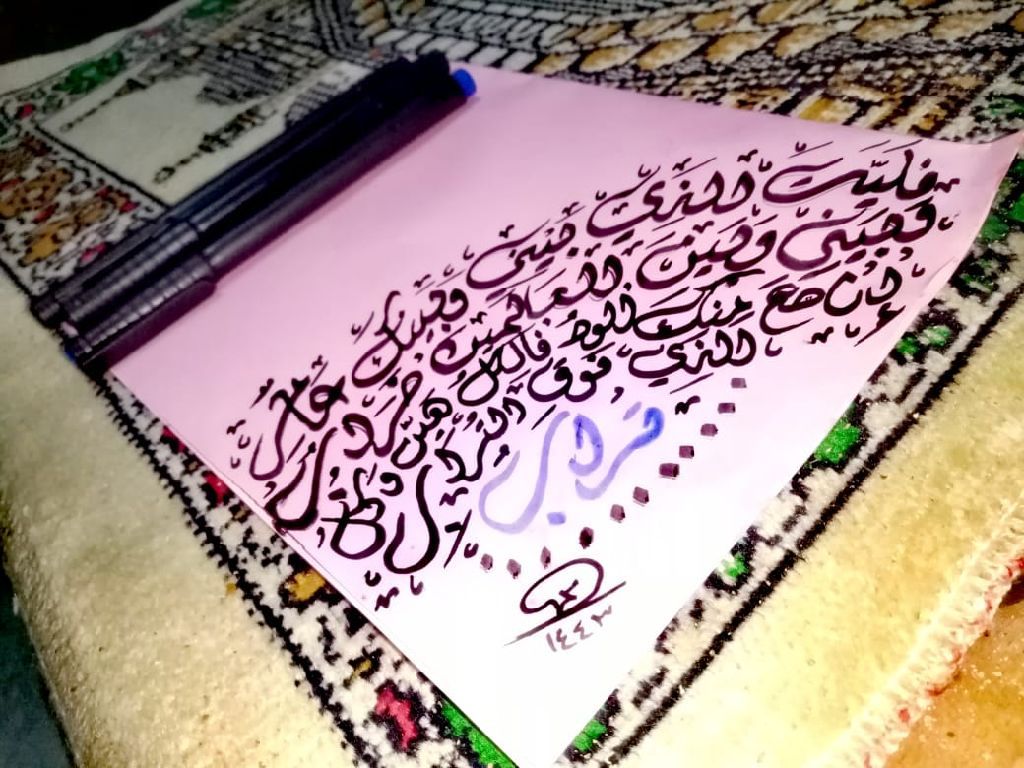 فليت الذي بيني وبينك عامر
وبيني وبين العالمين خراب
إذا صح منك الود فالكل هين وكل
الذي فوق التراب
تراب
١٤٤٣